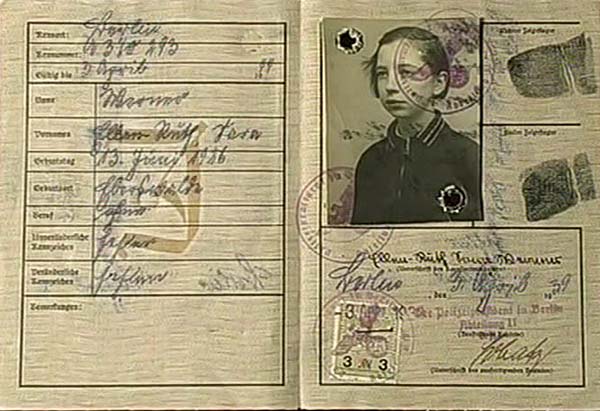 Kennort: Berlin
Kennnummer: A 310 293
Gültig bis 5 April
Name Werner
Vornamen Ellen Ruth Sara
Geburtstag 13. Juni 1926
Geburtsort Eberswalde
Beruf Ohne
Unveränderliche
Kennzeichen Fehlen
Veränderliche
Kennzeichen fehlen
Bemerkungen:
Rechter Zeigefinger
Linker Zeigefinger
Ellen-Ruth Sara Werner
Berlin, den 5. April 1939
Der Polizeipräsident in Berlin
Abteilung II
(Unterschrift des ausfertigenden Beamten)
3
3 3